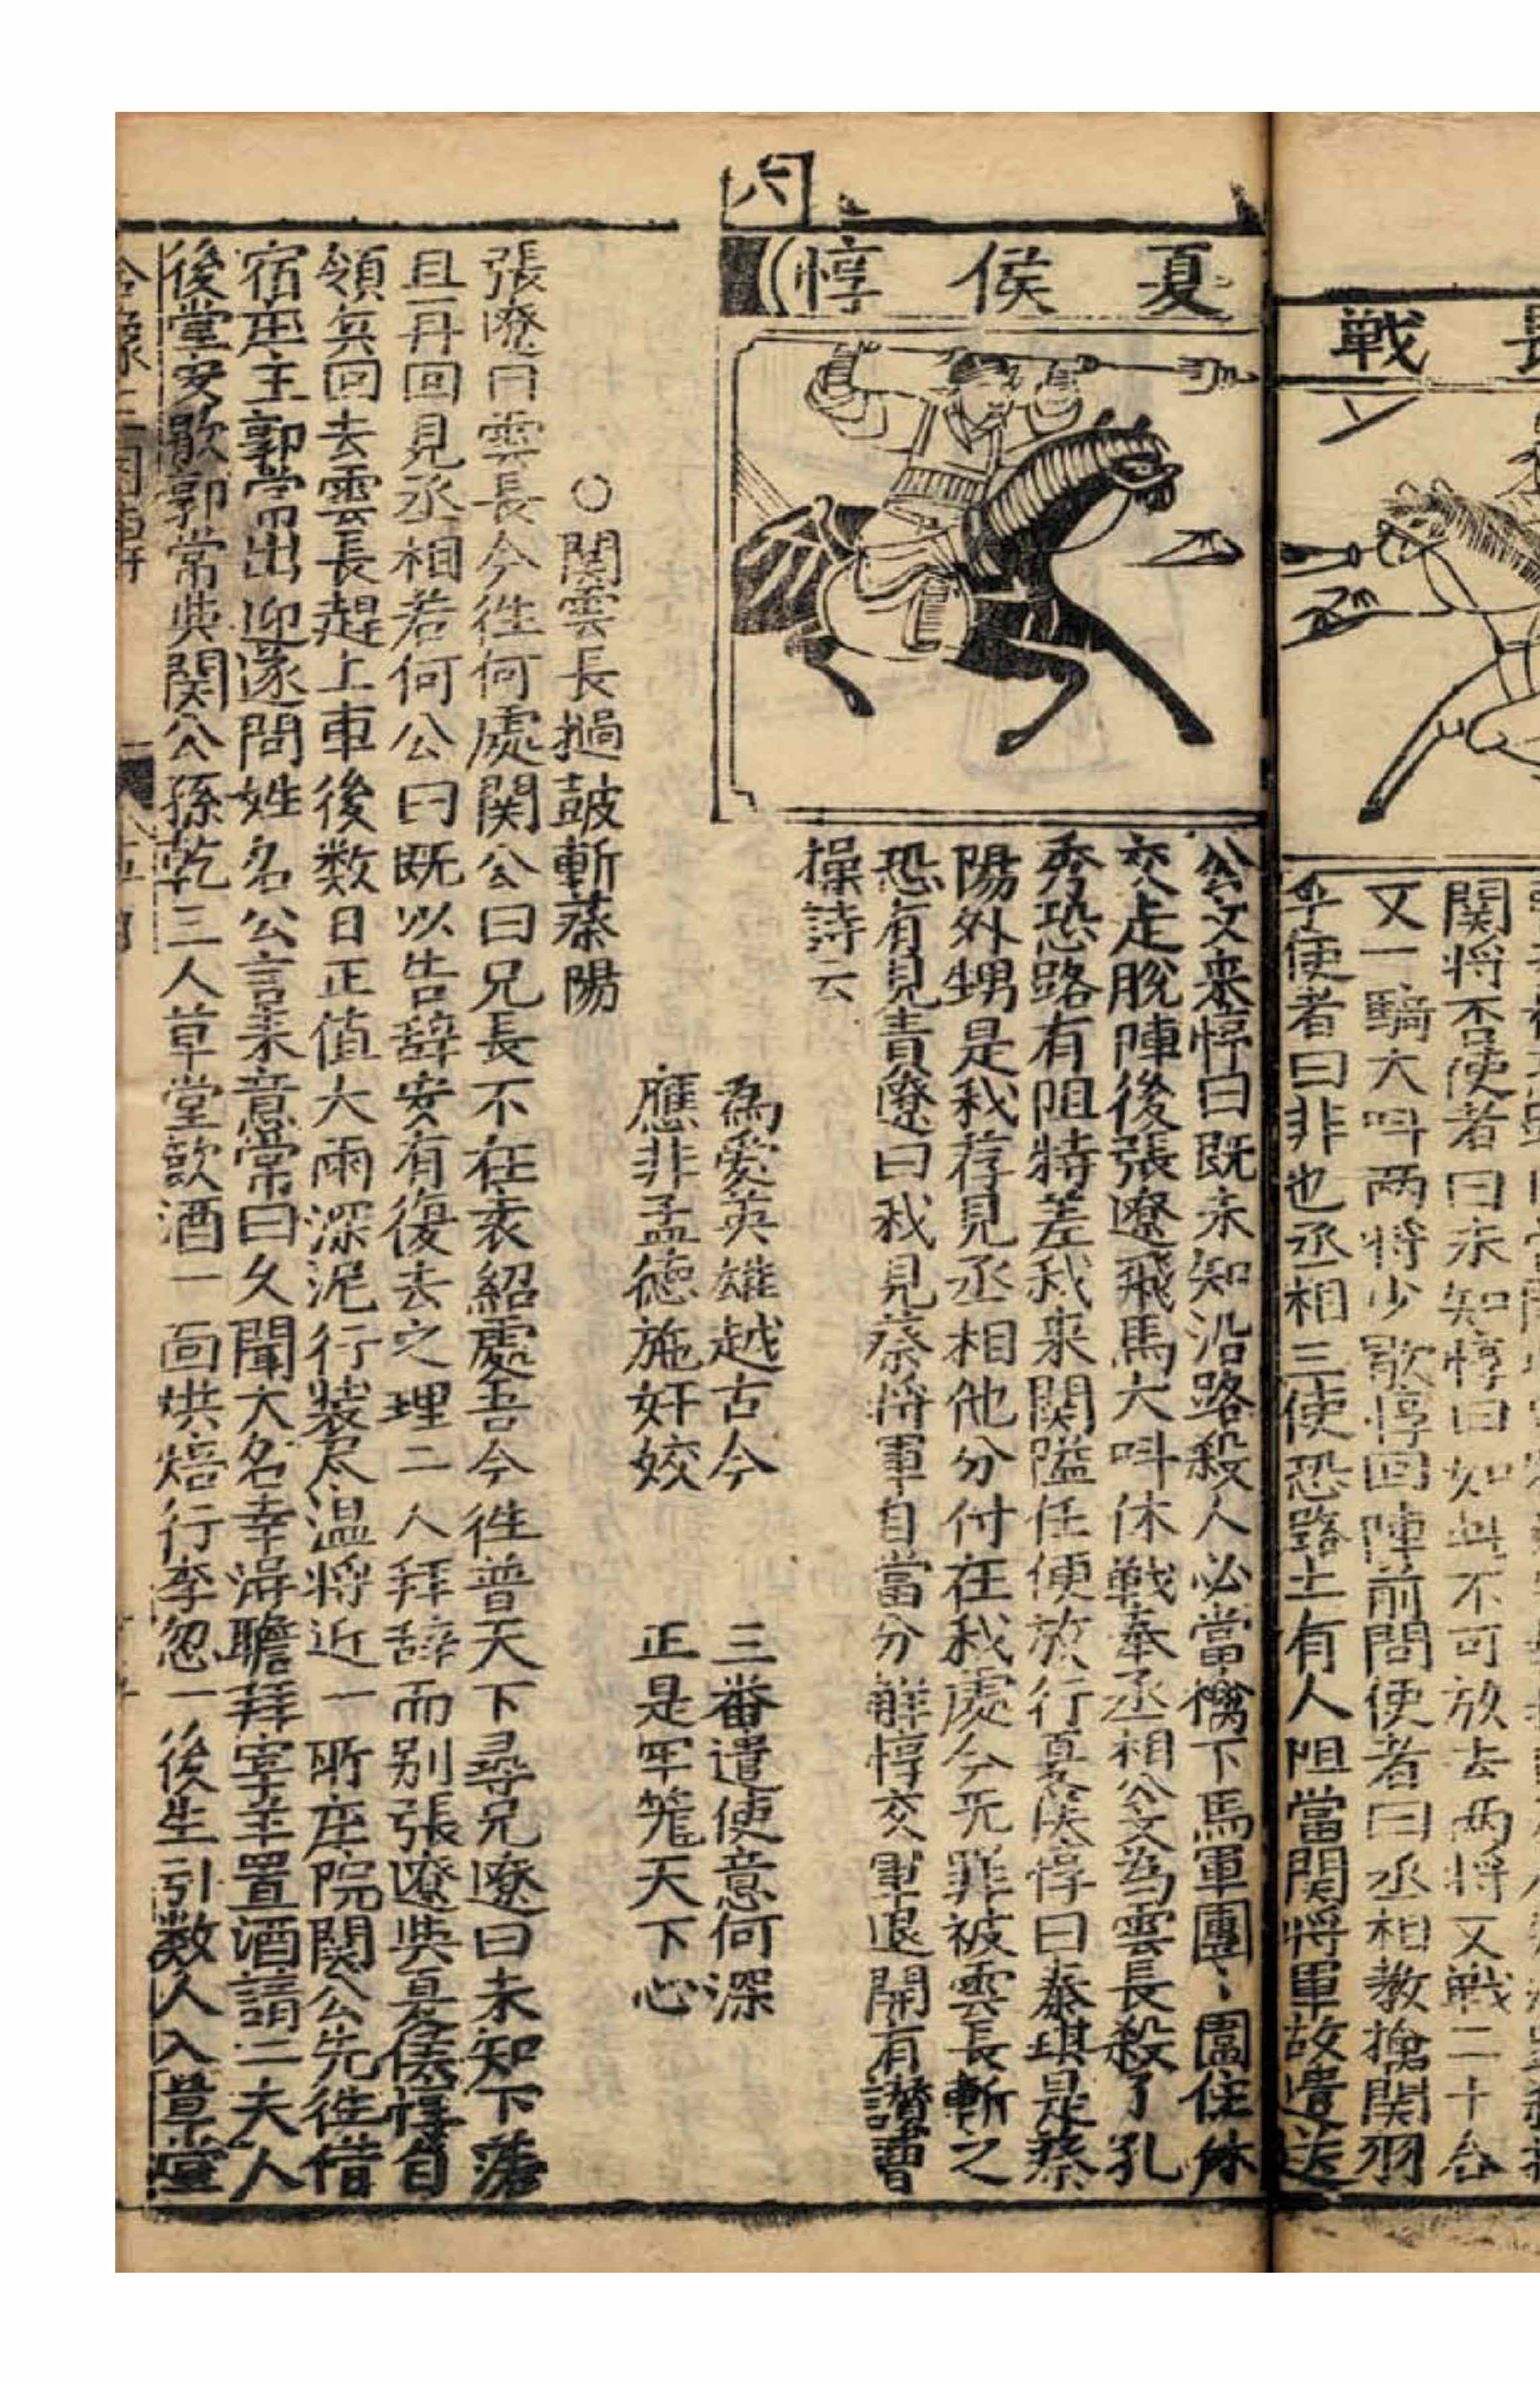 戦
関將否使者曰未知惇曰如此不可放去两將又戦二十合
又一騎大呌两將少歇惇回陣前問使者曰丞相教擒関羽
乎使者曰非也丞相三使恐路上有人阻當関將軍故遣送
六
夏侯惇
公文来惇曰既未知沿路殺人必當擒下馬軍團〻圍住休
交走脫陣後張遼飛馬大呌休戦奉丞相公文為雲長殺了孔
秀恐路有阻特差我来関隘任便放行夏侯惇曰秦琪是蔡
陽外甥是我荐見丞相他分付在我處今无罪被雲長斬之
恐有見責遼曰我見蔡將軍自當分觧惇交軍退開有讃曹
操詩云
為愛英雄越古今　三番遣使意何深
應非孟德施奸姣　正是牢籠天下心
○関雲長撾鼓斬蔡陽
張遼曰雲長今徃何處関公曰兄長不在袁紹處吾今徃普天下尋兄遼曰未知下落
且再回見丞相若何公曰既以告辞安有復去之理二人拜辞而别張遼與夏侯惇自
領兵回去雲長趕上車後数日正值大雨深泥行裝尽温將近一所庄院関公先徃借
宿庄主郭常出迎遂問姓名公言来意常曰久聞大名幸淂瞻拜宰羊置酒請二夫人
後堂安歇郭常與関公孫乾三人草堂飲酒一面烘焙行李忽一後生引数人入草堂